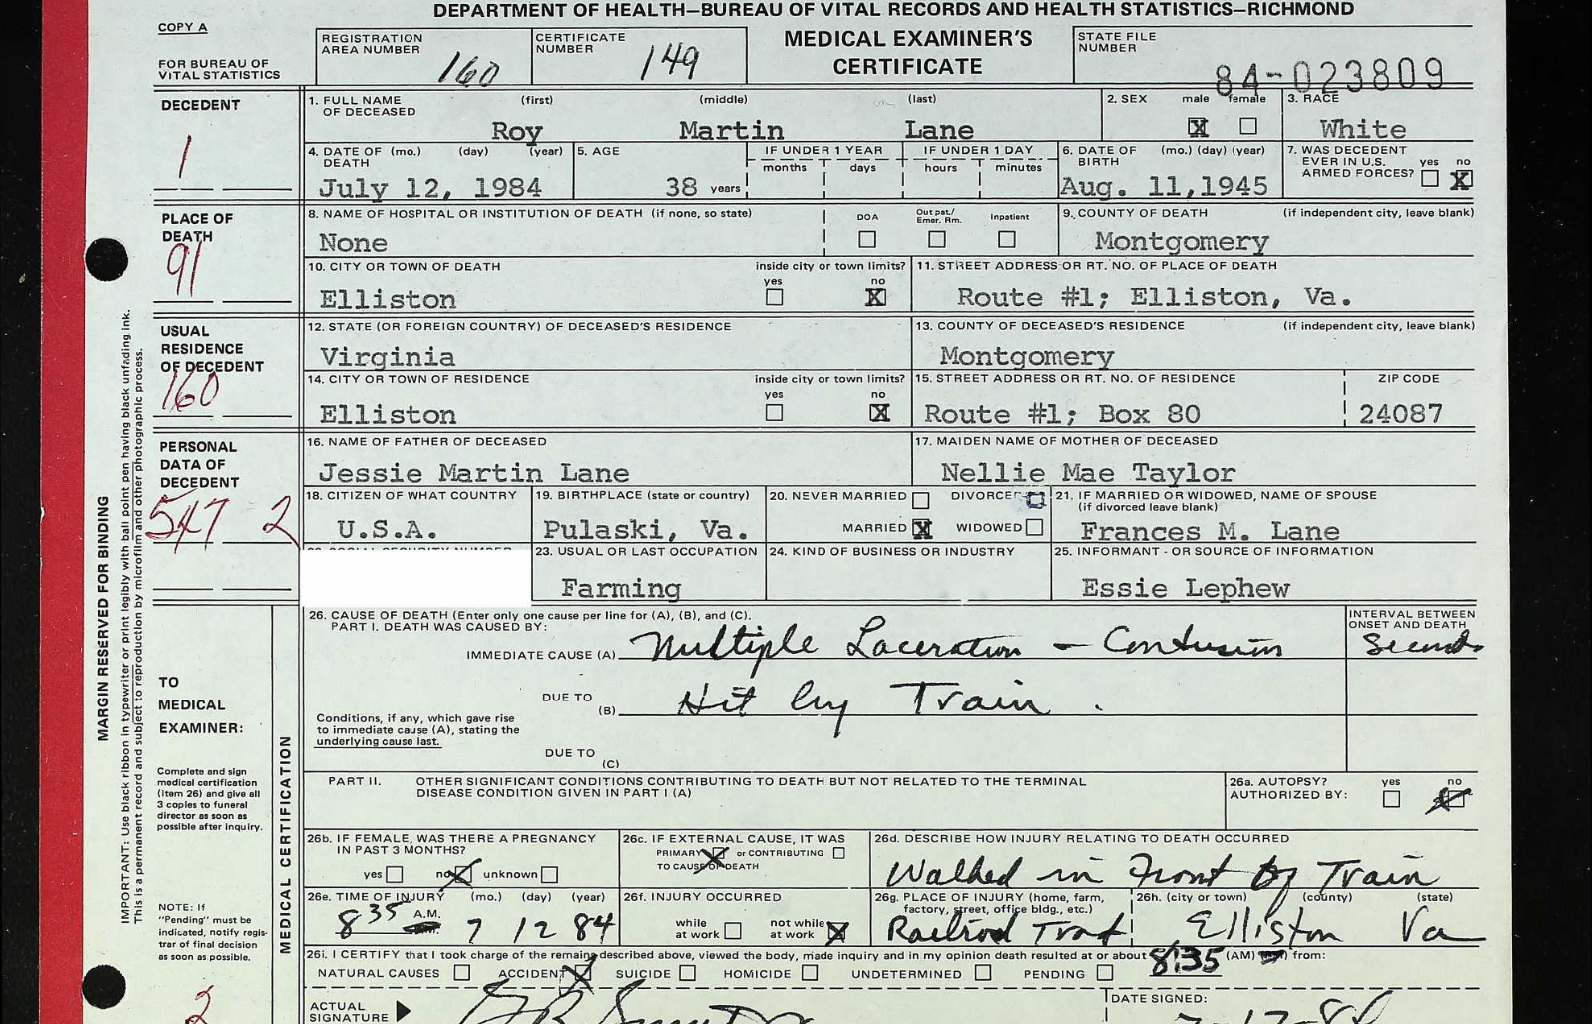 DEPARTMENT OF HEALTH—BUREAU OF VITAL RECORDS AND HEALTH STATISTICS—RICHMOND
COPY A
FOR BUREAU OF VITAL STATISTICS
REGISTRATION AREA NUMBER 160
CERTIFICATE NUMBER 149
MEDICAL EXAMINER'S CERTIFICATE
STATE FILE NUMBER 84-023809
DECEDENT
1
1. FULL NAME OF DECEASED (first) (middle) (last)
Roy Martin Lane
2. SEX male X female
3. RACE
White
4. DATE OF DEATH (mo.) (day) (year)
July 12, 1984
5. AGE
38 years
IF UNDER 1 YEAR months days
IF UNDER 1 DAY hours minutes
6. DATE OF BIRTH (mo.) (day) (year)
Aug. 11,1945
7. WAS DECEDENT EVER IN U.S. ARMED FORCES? yes no X
PLACE OF DEATH
91
8. NAME OF HOSPITAL OR INSTITUTION OF DEATH (if none, so state)
None
DOA Out pat./Emer. Rm. Inpatient
9. COUNTY OF DEATH (if independent city, leave blank)
Montgomery
10. CITY OR TOWN OF DEATH inside city or town limits? yes no X
Elliston
11. STREET ADDRESS OR RT. NO. OF PLACE OF DEATH
Route #1; Elliston, Va.
USUAL RESIDENCE OF DECEDENT
160
12. STATE (OR FOREIGN COUNTRY) OF DECEASED'S RESIDENCE
Virginia
13. COUNTY OF DECEASED'S RESIDENCE (if independent city, leave blank)
Montgomery
14. CITY OR TOWN OF RESIDENCE inside city or town limits? yes no X
Elliston
15. STREET ADDRESS OR RT. NO. OF RESIDENCE ZIP CODE
Route #1; Box 80 24087
PERSONAL DATA OF DECEDENT
547 2
16. NAME OF FATHER OF DECEASED
Jessie Martin Lane
17. MAIDEN NAME OF MOTHER OF DECEASED
Nellie Mae Taylor
18. CITIZEN OF WHAT COUNTRY
U.S.A.
19. BIRTHPLACE (state or country)
Pulaski, Va.
20. NEVER MARRIED DIVORCED
MARRIED X WIDOWED
21. IF MARRIED OR WIDOWED, NAME OF SPOUSE (if divorced leave blank)
Frances M. Lane
23. USUAL OR LAST OCCUPATION
Farming
24. KIND OF BUSINESS OR INDUSTRY
25. INFORMANT - OR SOURCE OF INFORMATION
Essie Lephew
MARGIN RESERVED FOR BINDING
IMPORTANT: Use black ribbon in typewriter or print legibly with ball point pen having black unfading ink.
This is a permanent record and subject to reproduction by microfilm and other photographic process.
TO MEDICAL EXAMINER:
Complete and sign medical certification (item 26) and give all 3 copies to funeral director as soon as possible after inquiry.
NOTE: If "Pending" must be indicated, notify registrar of final decision as soon as possible.
2
MEDICAL CERTIFICATION
26. CAUSE OF DEATH (Enter only one cause per line for (A), (B), and (C).
PART I. DEATH WAS CAUSED BY:
INTERVAL BETWEEN ONSET AND DEATH
IMMEDIATE CAUSE (A) Multiple Laceration – Contusion Seconds
DUE TO (B) Hit by Train.
Conditions, if any, which gave rise to immediate cause (A), stating the underlying cause last.
DUE TO (C)
PART II. OTHER SIGNIFICANT CONDITIONS CONTRIBUTING TO DEATH BUT NOT RELATED TO THE TERMINAL DISEASE CONDITION GIVEN IN PART I (A)
26a. AUTOPSY? AUTHORIZED BY: yes no
26b. IF FEMALE, WAS THERE A PREGNANCY IN PAST 3 MONTHS?
yes no unknown
26c. IF EXTERNAL CAUSE, IT WAS
PRIMARY or CONTRIBUTING
TO CAUSE OF DEATH
26d. DESCRIBE HOW INJURY RELATING TO DEATH OCCURRED
Walked in Front of Train
26e. TIME OF INJURY (mo.) (day) (year)
8 35 A.M. 7 12 84
26f. INJURY OCCURRED
while at work not while at work X
26g. PLACE OF INJURY (home, farm, factory, street, office bldg., etc.)
26h. (city or town) (county) (state)
Elliston Va
26i. I CERTIFY that I took charge of the remains described above, viewed the body, made inquiry and in my opinion death resulted at or about 8:35 (AM) from:
NATURAL CAUSES ACCIDENT X SUICIDE HOMICIDE UNDETERMINED PENDING
ACTUAL SIGNATURE
DATE SIGNED: